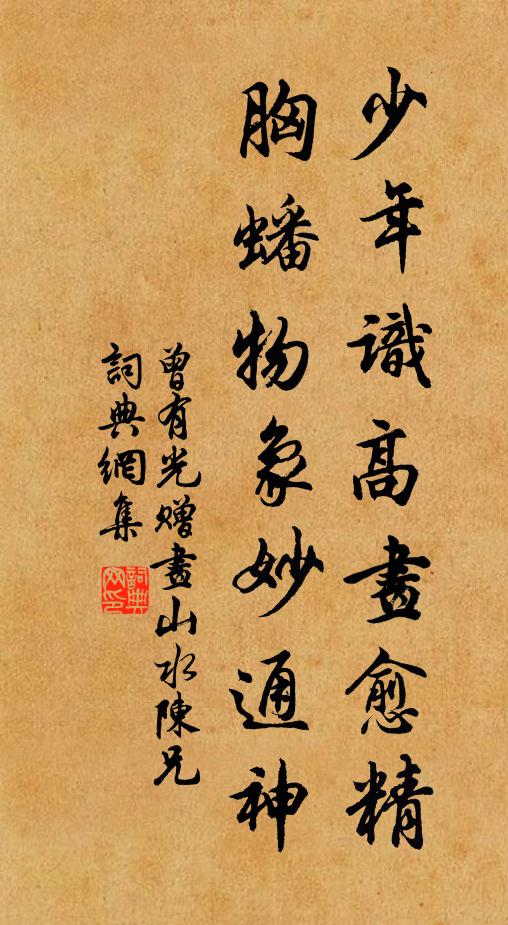 少年識高畫愈精
胸蟠物象妙通神
曾有光贈畫山水陳兄
詞典網集
詞典
网印